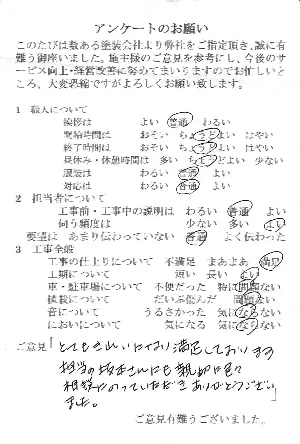 アンケートのお願い
このたびは数ある塗装会社より弊社をご指定頂き、誠に有
難う御座いました。施主様のご意見を参考にし、今後のサ
ービス向上・経営改善に努めてまいりますのでお忙しいと
ころ、大変恐縮ですがよろしくお願い致します。
1 職人について
挨拶は よい 普通 わるい
開始時間は おそい ちょうどよい はやい
終了時間は おそい ちょうどよい はやい
昼休み・休憩時間は 多い ちょうどよい 少ない
服装は わるい 普通 よい
対応は わるい 普通 よい
2 担当者について
工事前・工事中の説明は わるい 普通 よい
伺う頻度は 少ない 多い よい
要望は あまり伝わっていない 普通 よく伝わった
3 工事全般
工事の仕上りについて 不満足 まあまあ 満足
工期について 短い 長い よい
車・駐車場について 不便だった 特に問題ない
植栽について だいぶ傷んだ 問題ない
音について うるさかった 気にならない
においについて 気になる 気にならない
ご意見「とてもきれいになり満足しております
担当の坂本さんにも親切に色々
相談にのっていただきありがとうござい
ました。」
ご意見有難うございました。